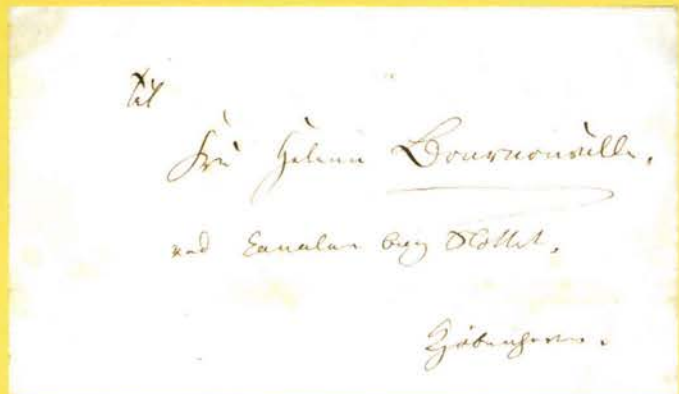 Til
Fru Helene Bournonville,
ved Canalen bag Slottet,
Kjöbenhavn.